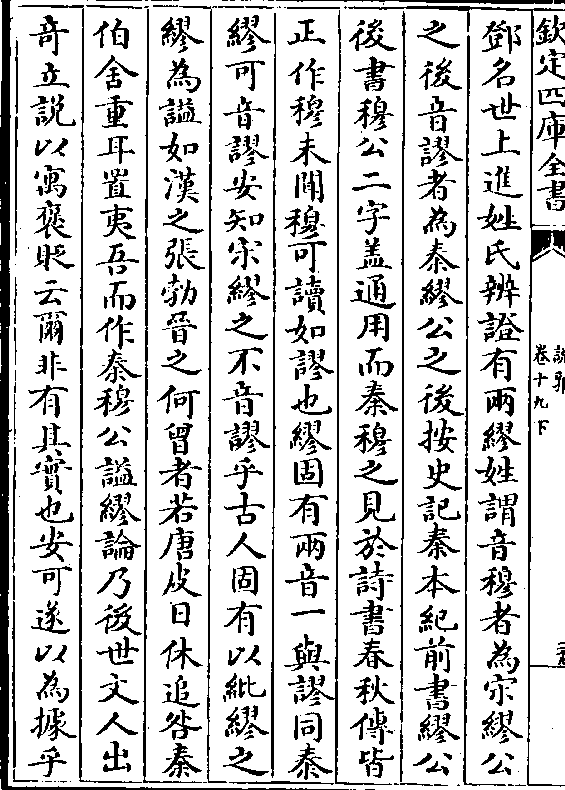 欽定四庫全書
說郛
卷十九下
鄧名世上進姓氏辨證有兩繆姓謂音穆者為宋繆公
之後音謬者為秦繆公之後按史記秦本紀前書繆公
後書穆公二字盖通用而秦穆之見於詩書春秋傳皆
正作穆未聞穆可讀如謬也繆固有兩音一與謬同秦
繆可音謬安知宋繆之不音謬乎古人固有以紕繆之
繆為謚如漢之張勃晉之何曾者若唐皮日休追咎秦
伯舍重耳置夷吾而作秦穆公謚繆論乃後世文人出
竒立説以寓褒貶云爾非有其實也安可遂以為據乎